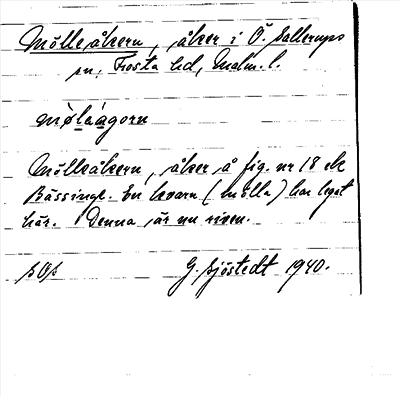 Mölleåkern, åker i Ö. Sallerups
sn, Frosta hd, Malm. l.
mølaágorn
Mölleåkern, åker å fig. nr 18 ek
Bässingl. En kvarn (mölla) har legat
här. Denna är nu riven.
G. Sjöstedt 1940.